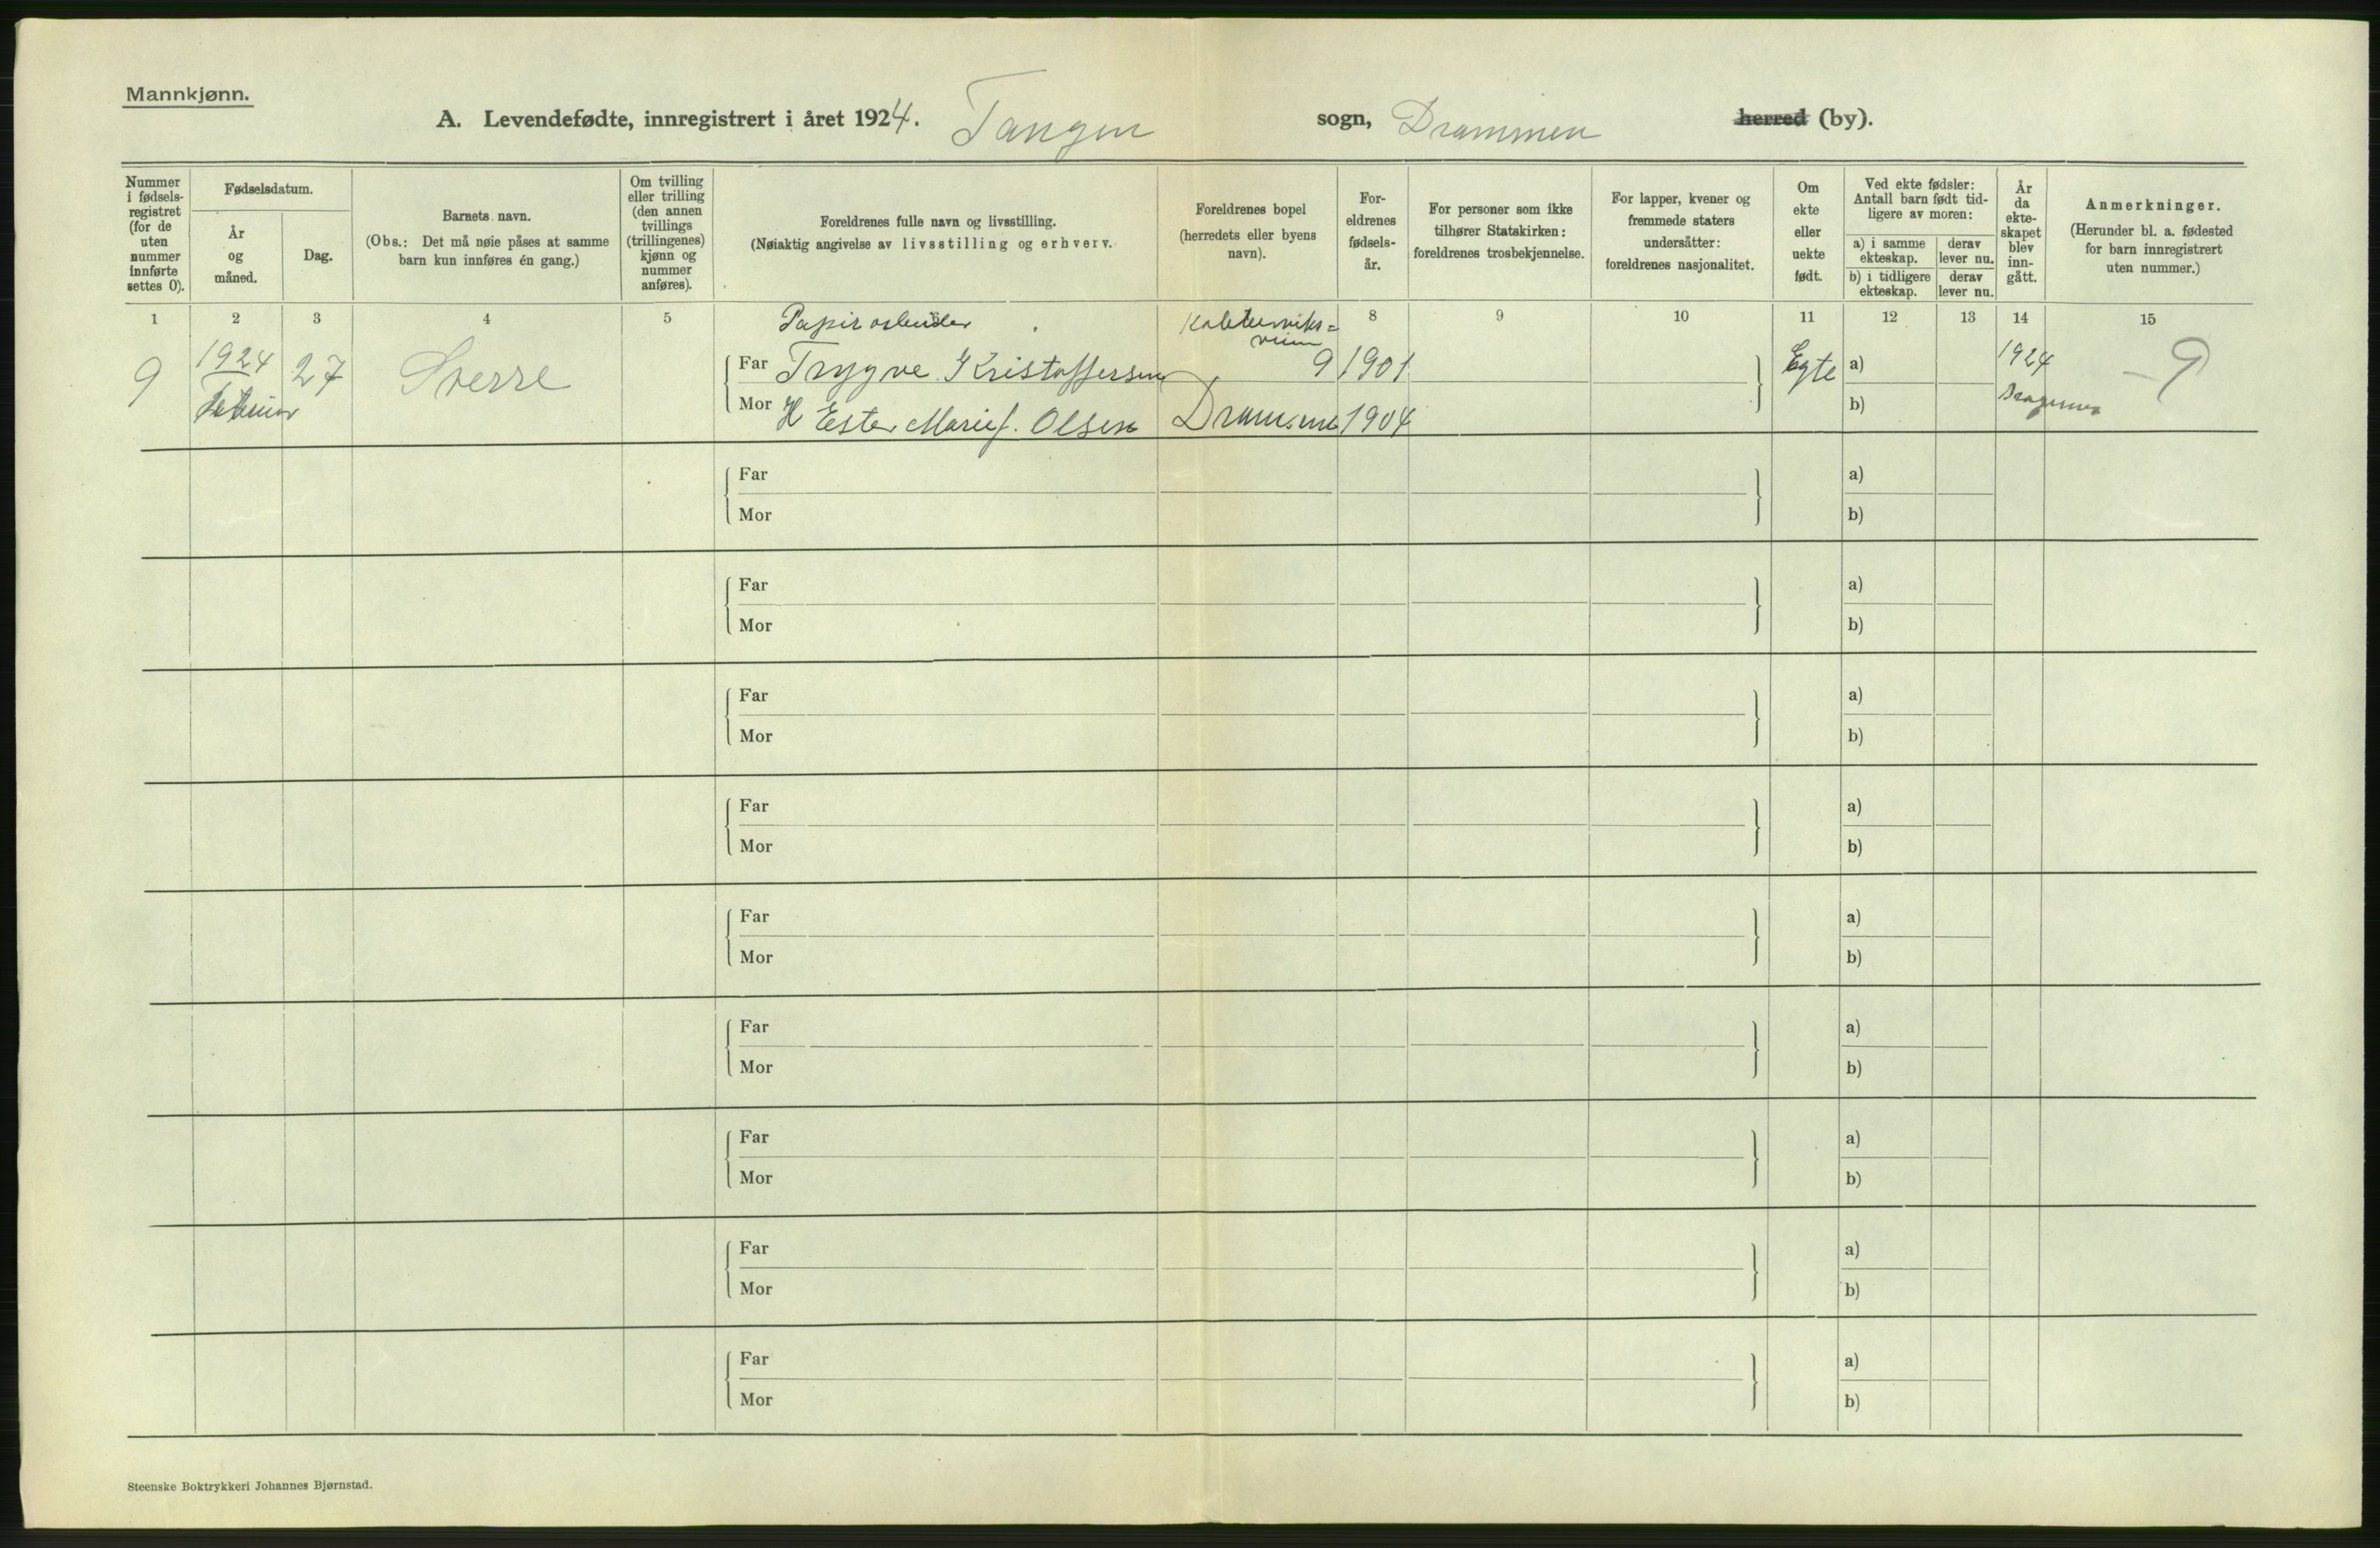 Mannkjønn.
A. Levendefødte, innregistrert i året 1924. Tangen sogn, Drammen herred (by).
Nummer i fødselsregistret (for de uten nummer innførte settes 0).
Fødselsdatum.
År og måned.
Dag.
Barnets navn.
(Obs.: Det må nøie påses at samme barn kun innføres én gang.)
Om tvilling eller trilling (den annen tvillings (trillingenes) kjønn og nummer anføres).
Foreldrenes fulle navn og livsstilling.
(Nøiaktig angivelse av livsstilling og erhverv.
Foreldrenes bopel (herredets eller byens navn).
Foreldrenes fødselsår.
For personer som ikke tilhører Statskirken: foreldrenes trosbekjennelse.
For lapper, kvener og fremmede staters undersåtter: foreldrenes nasjonalitet.
Om ekte eller uekte født.
Ved ekte fødsler: Antall barn født tidligere av moren:
a) i samme ekteskap.
derav lever nu.
b) i tidligere ekteskap.
derav lever nu.
År da ekteskapet blev inngått.
Anmerkninger.
(Herunder bl. a. fødested for barn innregistrert uten nummer.)
1 2 3 4 5 8 9 10 11 12 13 14 15
9 1924 Februar 27 Sverre
Far Trygve Kristoffersen 9 1901 Egte a) 1924 9
Mor H Ester Marie f. Olsen Drammen 1904 b)
Far a)
Mor b)
Far a)
Mor b)
Far a)
Mor b)
Far a)
Mor b)
Far a)
Mor b)
Far a)
Mor b)
Far a)
Mor b)
Far a)
Mor b)
Far a)
Mor b)
Steenske Boktrykkeri Johannes Bjørnstad.